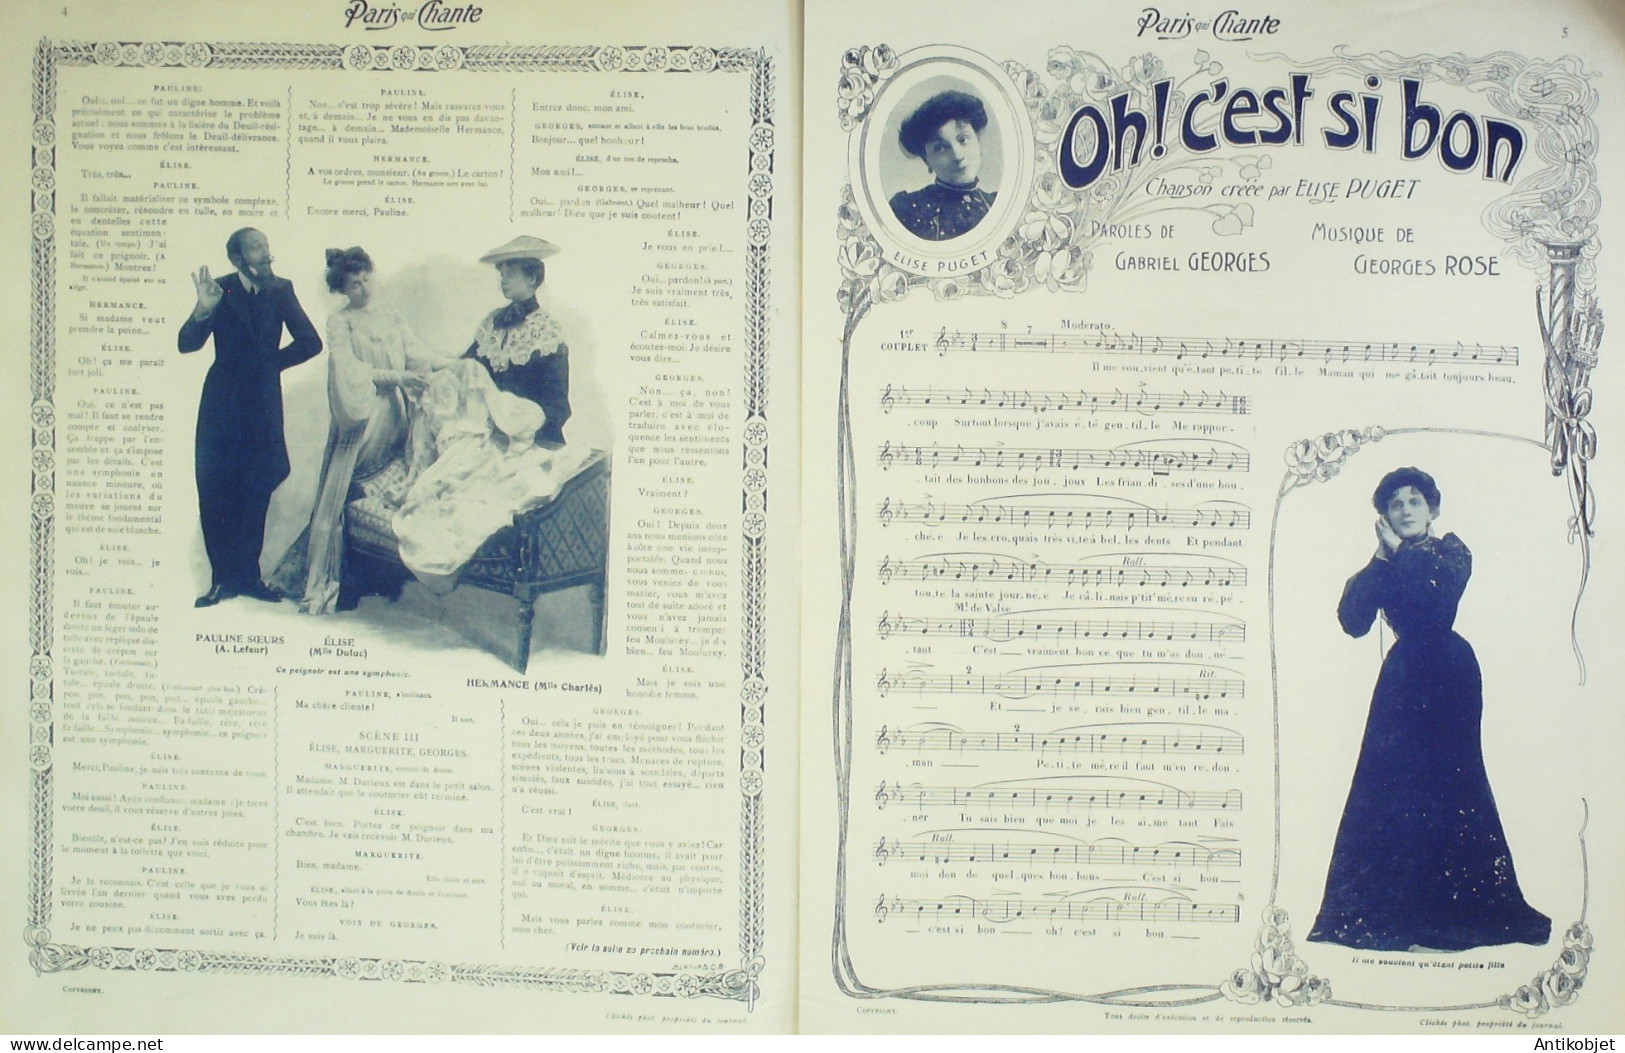 4
Paris qui Chante
PAULINE:
Oui... oui... ce fut un digne homme. Et voilà
précisément ce qui caractérise le problème
actuel : nous sommes à la lisière du Deuil-rési-
gnation et nous frôlons le Deuil-délivrance.
Vous voyez comme c'est intéressant.
ÉLISE.
Très, très...
PAULINE.
Il fallait matérialiser ce symbole complexe,
le concréter, résoudre en tulle, en moire et
en dentelles cette
équation sentimen-
tale. (Un temps.) J'ai
fait ce peignoir. (A
Hermance.) Montrez!
HERMANCE.
Si madame veut
prendre la peine...
ÉLISE.
Oh! ça me paraît
fort joli.
PAULINE.
Oui, ce n'est pas
mal! Il faut se rendre
compte et analyser.
Ça frappe par l'en-
semble et ça s'impose
par les détails. C'est
une symphonie en
nuance mineure, où
les variations du
mauve se jouent sur
le thème fondamental
qui est de soie blanche.
ÉLISE.
Oh! je vois... je
vois...
PAULINE.
Il faut écouter au-
dessus de l'épaule
droite un léger solo de
tulle avec réplique dis-
crète de crépon sur
la gauche. (Fredonnant.)
Tu-tule, tu-tule, tu-
tule... épaule droite. (Fredonnant plus bas.) Cré-
pon, pon, pon, pon, pon... épaule gauche...
tout cela se fondant dans le tutti majestueux
de la faille moirée... Fa-faille, rère, rère
fa-faille... Symphonie... symphonie... ce peignoir
est une symphonie.
ÉLISE.
Merci, Pauline, je suis très contente de vous.
PAULINE.
Moi aussi! Ayez confiance, madame : je tiens
votre deuil, il vous réserve d'autres joies.
ÉLISE.
Bientôt, n'est-ce pas? J'en suis réduite pour
le moment à la toilette que voici.
PAULINE.
Je la reconnais. C'est celle que je vous ai
livrée l'an dernier quand vous avez perdu
votre cousine.
ÉLISE.
Je ne peux pas décemment sortir avec ça.
PAULINE.
Non... c'est trop sévère! Mais rassurez vous
et, à demain... Je ne vous en dis pas davan-
tage... à demain... Mademoiselle Hermance,
quand il vous plaira.
HERMANCE.
A vos ordres, monsieur. (Au groom.) Le carton!
Le groom prend le carton. Hermance sort avec lui.
ÉLISE.
Encore merci, Pauline.
PAULINE SŒURS
(A. Lefaur)
ÉLISE
(Mlle Duluc)
Ce peignoir est une symphonie.
HERMANCE (Mlle Charlès)
PAULINE, s'inclinant.
Ma chère cliente!
Il sort.
SCÈNE III
ÉLISE, MARGUERITE, GEORGES.
MARGUERITE, entrant de droite.
Madame. M. Durieux est dans le petit salon.
Il attendait que le couturier eût terminé.
ÉLISE.
C'est bien. Portez ce peignoir dans ma
chambre. Je vais recevoir M. Durieux.
MARGUERITE.
Bien, madame.
ÉLISE, allant à la porte de droite et l'ouvrant.
Vous êtes là?
VOIX DE GEORGES.
Je suis là.
ÉLISE,
Entrez donc, mon ami.
GEORGES, entrant et allant à elle les bras tendus.
Bonjour... quel bonheur!
ÉLISE, d'un ton de reproche.
Mon ami!...
GEORGES, se reprenant.
Oui... pardon (Galment.) Quel malheur! Quel
malheur! Dieu que je suis content!
ÉLISE.
Je vous en prie!...
GEORGES.
Oui... pardon! (A part.)
Je suis vraiment très,
très satisfait.
ÉLISE.
Calmez-vous et
écoutez-moi. Je désire
vous dire...
GEORGES.
Non... ça, non!
C'est à moi de vous
parler, c'est à moi de
traduire avec élo-
quence les sentiments
que nous ressentons
l'un pour l'autre.
ÉLISE.
Vraiment?
GEORGES.
Oui! Depuis deux
ans nous menions côte
à côte une vie insup-
portable. Quand nous
nous sommes connus,
vous veniez de vous
marier, vous m'avez
tout de suite adoré et
vous n'avez jamais
consenti à tromper
feu Moulurey... je dis
bien... feu Moulurey.
ÉLISE.
Mais je suis une
honnête femme.
GEORGES.
Oui... cela je puis en témoigner! Pendant
ces deux années, j'ai employé pour vous fléchir
tous les moyens, toutes les méthodes, tous les
expédients, tous les trucs. Menaces de rupture,
scènes violentes, liaisons à scandales, départs
simulés, faux suicides, j'ai tout essayé... rien
n'a réussi.
ÉLISE, riant.
C'est vrai!
GEORGES.
Et Dieu sait le mérite que vous y aviez! Car
enfin..., c'était un digne homme, il avait pour
lui d'être puissamment riche, mais, par contre,
il n'vaquait d'esprit. Médiocre au physique,
nul au moral, en somme... c'était n'importe
qui.
ÉLISE.
Mais vous parlez comme mon couturier,
mon cher.
(Voir la suite au prochain numéro.)
COPYRIGHT.
Clichés phot. propriété du journal.
Paris qui Chante
5
Oh! c'est si bon
Chanson créée par ELISE PUGET
ELISE PUGET
PAROLES DE
GABRIEL GEORGES
MUSIQUE DE
GEORGES ROSE
1er
COUPLET
7
Moderato.
Il me sou.vient qu'é.tant pe.ti.te fil.le Maman qui me gâ.tait toujours beau.
.coup Surtout lorsque j'avais é.té gen.til.le Me rappor.
.tait des bonbons des jou.joux Les frian.di.ses d'une bou.
.ché.e Je les cro.quais très vi.te à bel.les dents Et pendant
Rall.
tou.te la sainte jour.né.e Je câ.li.nais p'tit' mè.re en ré.pé.
Mt de Valse
.tant C'est vraiment bon ce que tu m'as don.né
Rit.
Et je se.rais bien gen.til.le ma.
2
2
.man Pe.ti.te mè.re il faut m'en re.don.
.ner Tu sais bien que moi je les ai.me tant Fais
Rall.
moi don de quel.ques bon.bons C'est si bon
Rall.
c'est si bon oh! c'est si bon
Il me souvient qu'étant petite fille
COPYRIGHT.
Tous droits d'exécution et de reproduction réservés.
Clichés phot. propriété du journal.
Antikobjet